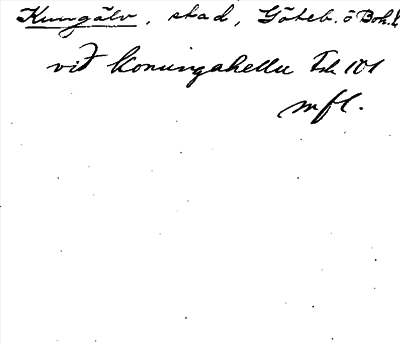 Kungälv, stad, Göteb. o Boh. l
við Konungahellu Fsk 101
mfl.